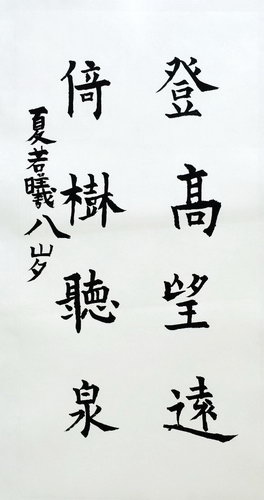 登高望遠
倚樹聽泉
夏若曦八岁